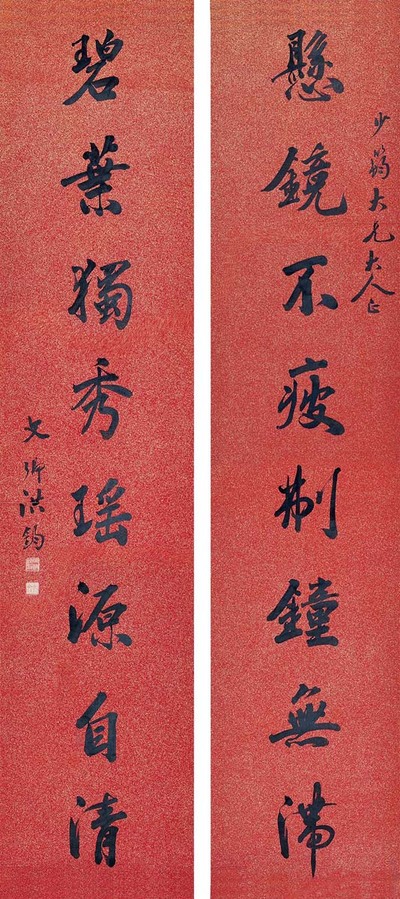 少大兄大人正
懸鏡不疲刜鐘無滯
碧葉獨秀瑤源自清
文卿洪鈞